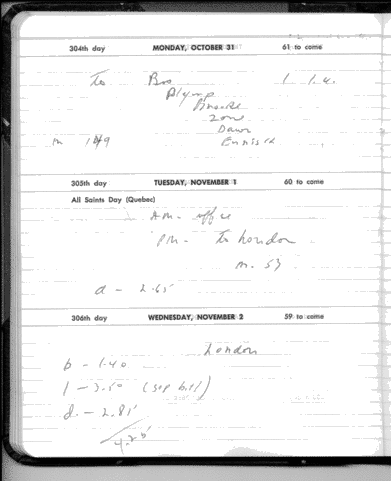 304th day MONDAY, OCTOBER 31 61 to come
To 1 1.4.
Plymp
Zone
Dawn
m 149
305th day TUESDAY, NOVEMBER 1 60 to come
All Saints Day (Quebec)
AM - office
PM - To London
m. 53
d - 2.65
306th day WEDNESDAY, NOVEMBER 2 59 to come
London
b - 1.40
l - 3.50 (sep bill)
d. - 2.85
4.25